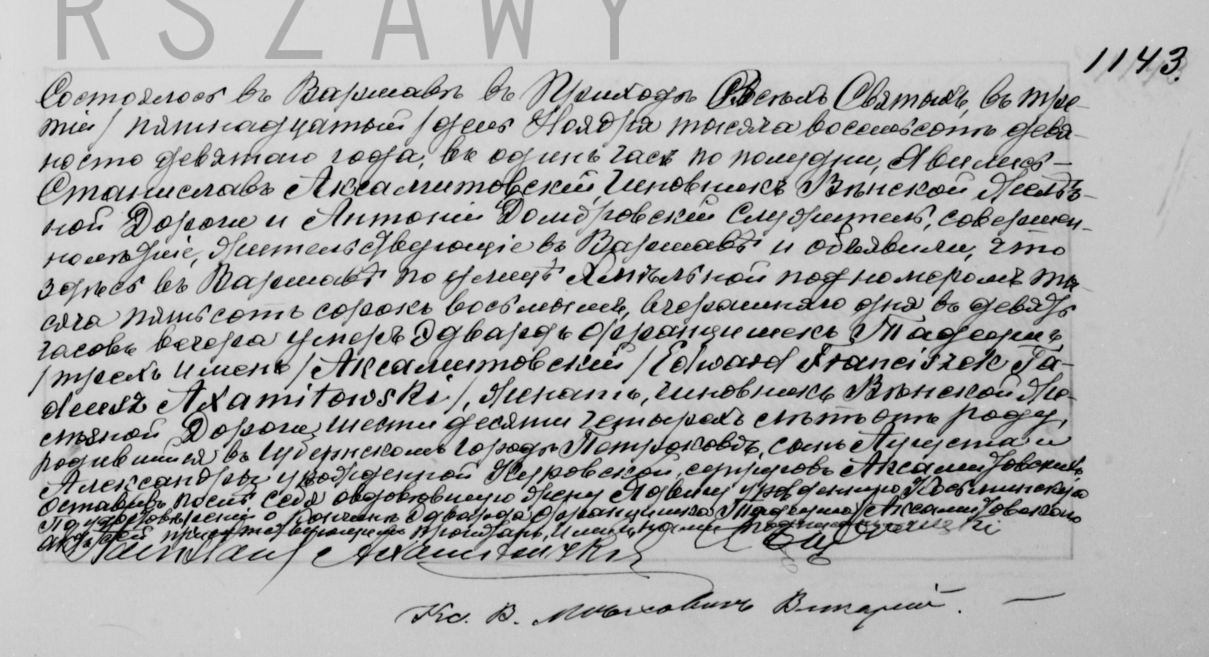 RSZAWY
1143.
Состоялось въ Варшавѣ въ Приходѣ Всѣхъ Святыхъ, въ тре-
тій / пятнадцатый / день Ноября тысяча восемьсотъ девя-
носто девятаго года, въ одинъ часъ по полудни, Явились –
Станиславъ Аксамитовскій, Чиновникъ Вѣнской Желѣз-
ной Дороги и Антоній Домбровскій Служитель, совершен-
нолѣтніе, жительствующіе въ Варшавѣ и объявили, что
здѣсь въ Варшавѣ по улицѣ Хмѣльной подъ номеромъ ты-
сяча пятьсотъ сорокъ восьмымъ, вчерашняго дня въ девять
часовъ вечера умеръ Эдвардъ Францишекъ Тадеушъ
/ трехъ именъ / Аксамитовскій / Edward Franciszek Ta-
deusz Axamitowski /, женатъ, чиновникъ Вѣнской Же-
лѣзной Дороги, шестидесяти четырехъ лѣтъ отъ роду,
родившійся въ Губернскомъ городѣ Петроковѣ, сынъ Августа и
Александры урожденной Куровской, супруговъ Аксамитовскихъ,
Оставивъ послѣ себя овдовѣвшую жену Ядвигу урожденную
По удостовѣреніи о кончинѣ Эдварда Францишка Тадеуша Аксамитовскаго
актъ сей присутствующимъ прочитанъ, и ими и нами
Stanisław Axamitowski
Кс. В. Викарій. —